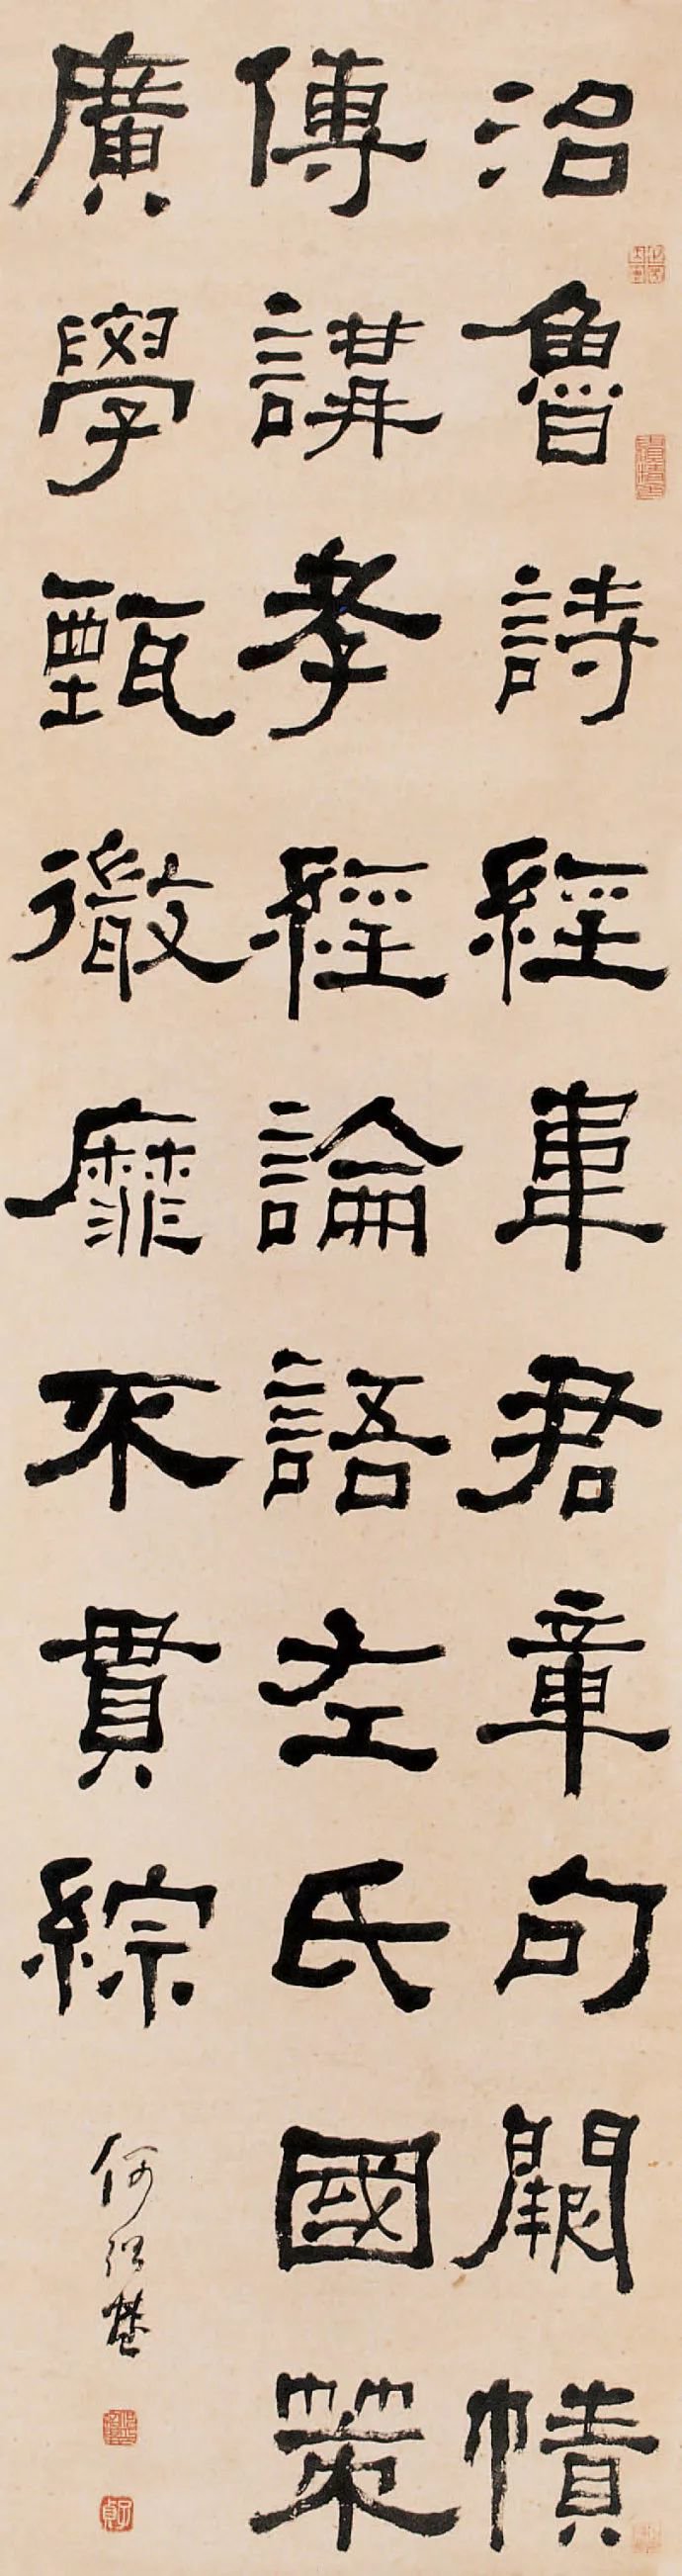 治魯詩經韋君章句闕幘
傳講孝經論語左氏國策
廣學甄徹靡不貫綜
何紹基
子貞